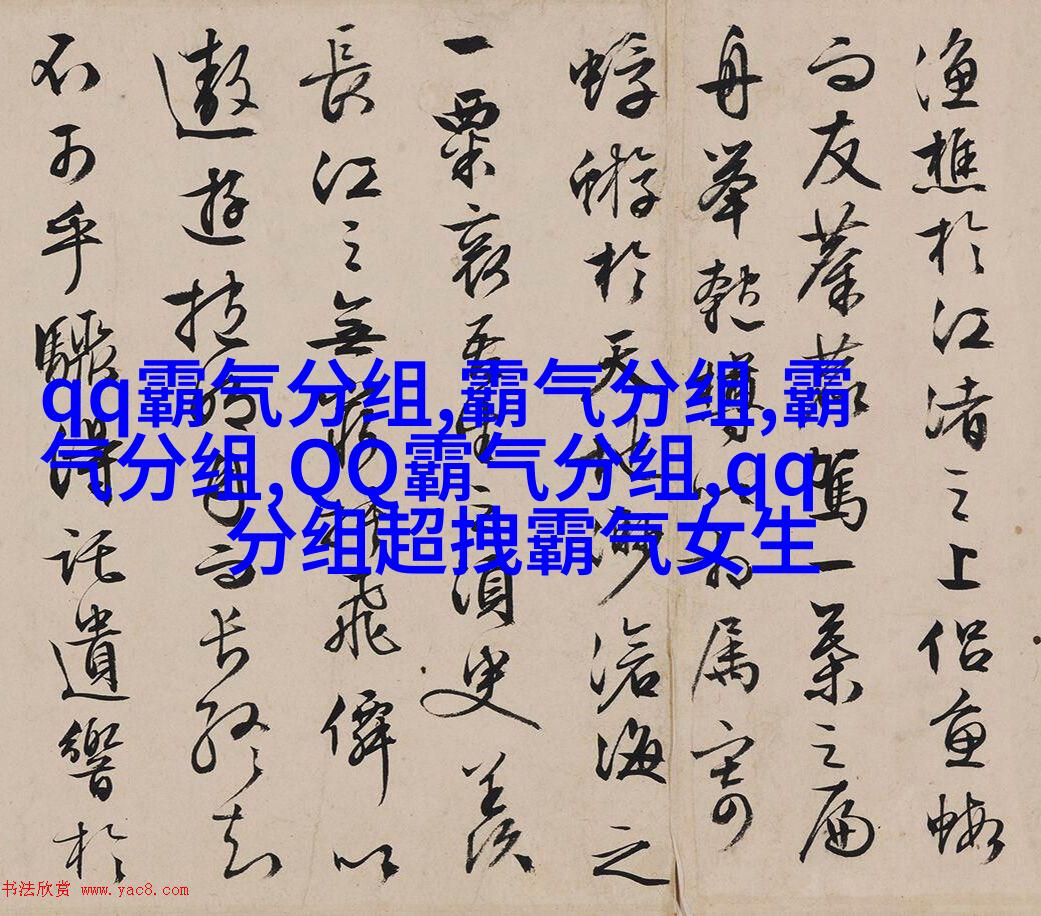 渔樵於江渚之上侣鱼蝦
而友麋鹿驾一葉之扁
舟举匏樽以相属寄
蜉蝣於天地渺滄海之
一粟哀吾生之須臾羡
長江之無窮挟飛僊以
遨遊抱明月而长终知
不可乎驟得託遺響於
qq霸气分组,霸气分组,霸
气分组,QQ霸气分组,qq
分组超拽霸气女生
书法欣赏 www.yac8.com